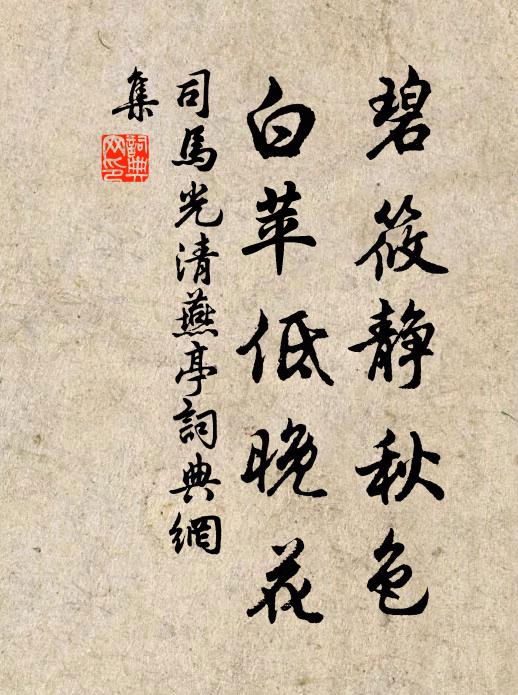 碧筱静秋色
白苹低晚花
司馬光清燕亭詞典網
集
詞典
网印